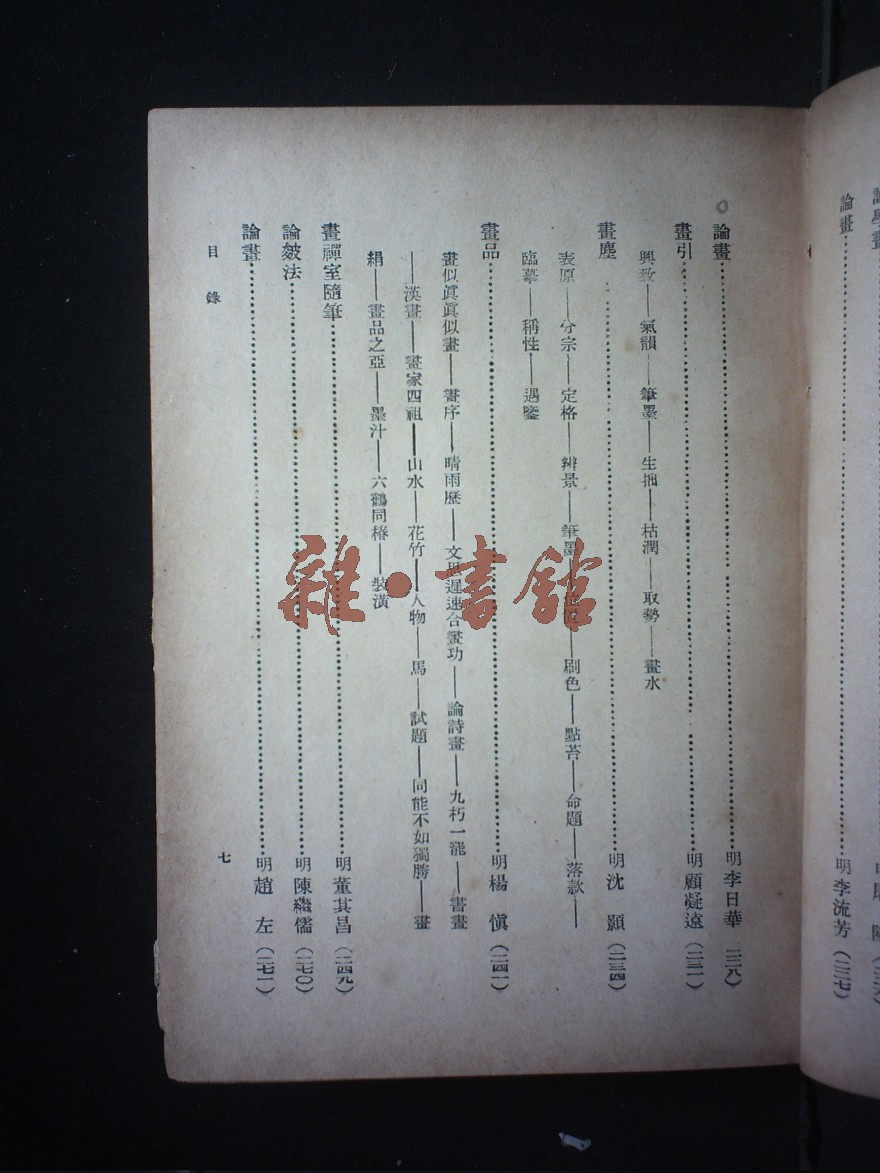 論畫⋯⋯明李流芳（二二七）
論畫⋯⋯明李日華 二二八）
畫引⋯⋯明顧凝遠（二三一）
興致——氣韻——筆墨——生拙——枯潤——取勢——畫水
畫塵⋯⋯明沈　顥（二三四）
表原——分宗——定格——辨景——筆墨——刷色——點苔——命題——落款——
臨摹——稱性——遇鑒
畫品⋯⋯明楊　愼（二四一）
畫似眞眞似畫——畵序——晴雨歷——文思遲速合畫功——論詩畫——九朽一罷——書畫
——漢畫——畫家四祖——山水——花竹——人物——馬——試題——同能不如獨勝——畫
絹——畫品之亞——墨汁——六鶴同椿——裝潢
畫禪室隨筆⋯⋯明董其昌（二四九）
論皴法⋯⋯明陳繼儒（二七〇）
論畫⋯⋯明趙　左（二七一）
目錄
七
雜·書館